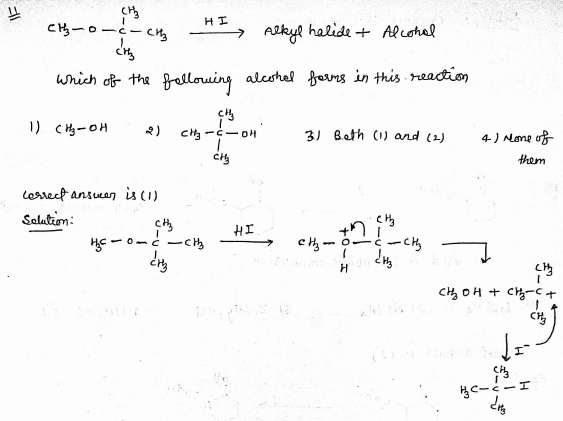 11
CH3
CH3-O-C-CH3 HI Alkyl halide + Alcohol
CH3
Which of the following alcohol forms in this reaction
CH3
1) CH3-OH 2) CH3-C-OH 3) Both (1) and (2) 4) None of them
CH3
correct answer is (1)
Solution:
CH3 CH3
H3C-O-C-CH3 HI CH3-O-C-CH3
CH3 + H CH3
CH3
CH3OH + CH3-C+
CH3
I-
CH3
H3C-C-I
CH3